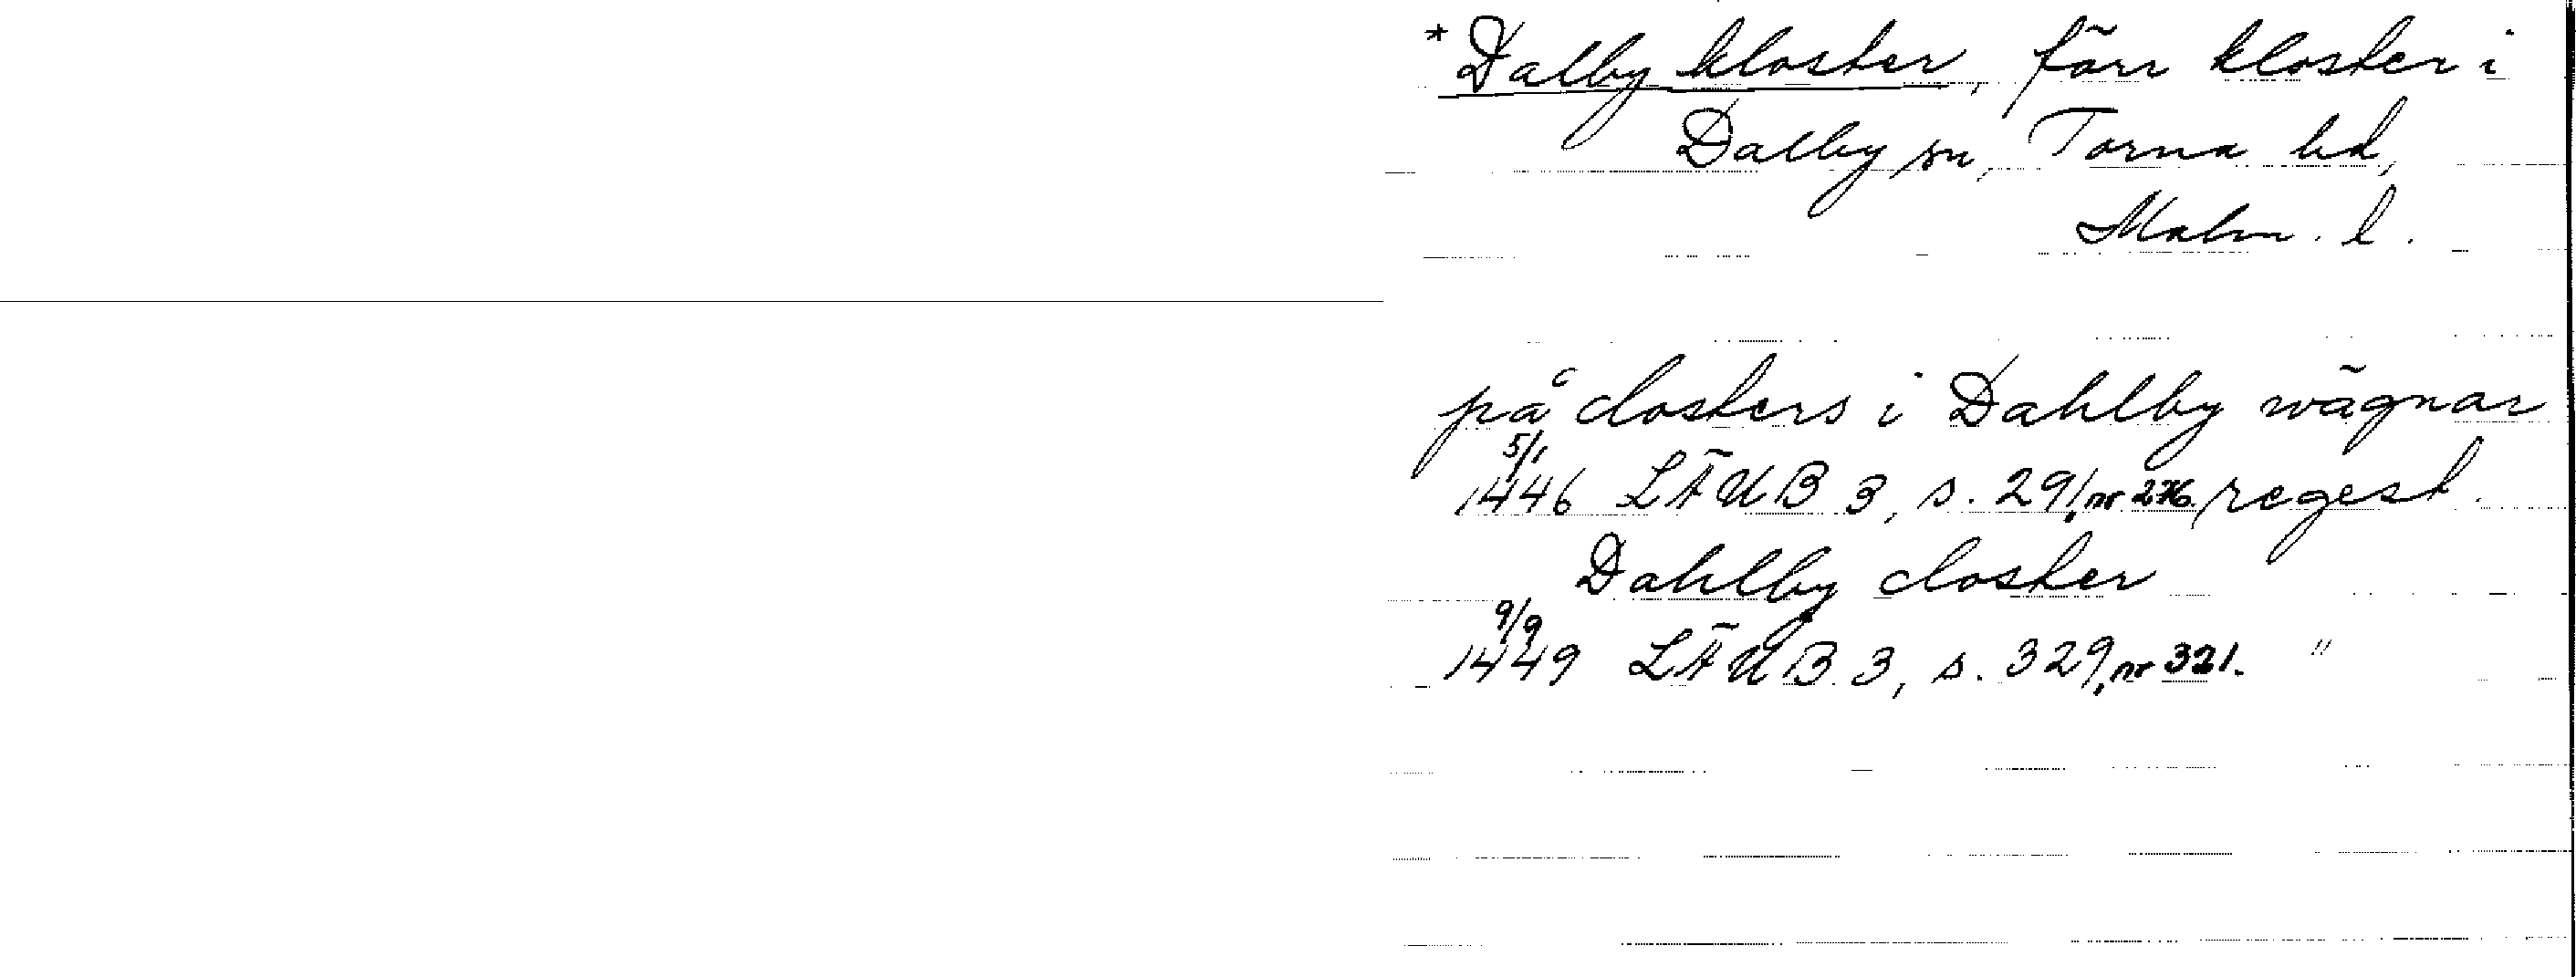 *Dalby kloster, förr kloster i
Dalby sn, Torna hd,
Malm. l.
på closters i Dahlby wägnar
5/1
1446 LÄUB 3, s. 291, nr 276. regest.
Dahlby closter
9/9
1449 LÄUB 3, s. 329, nr 321. "